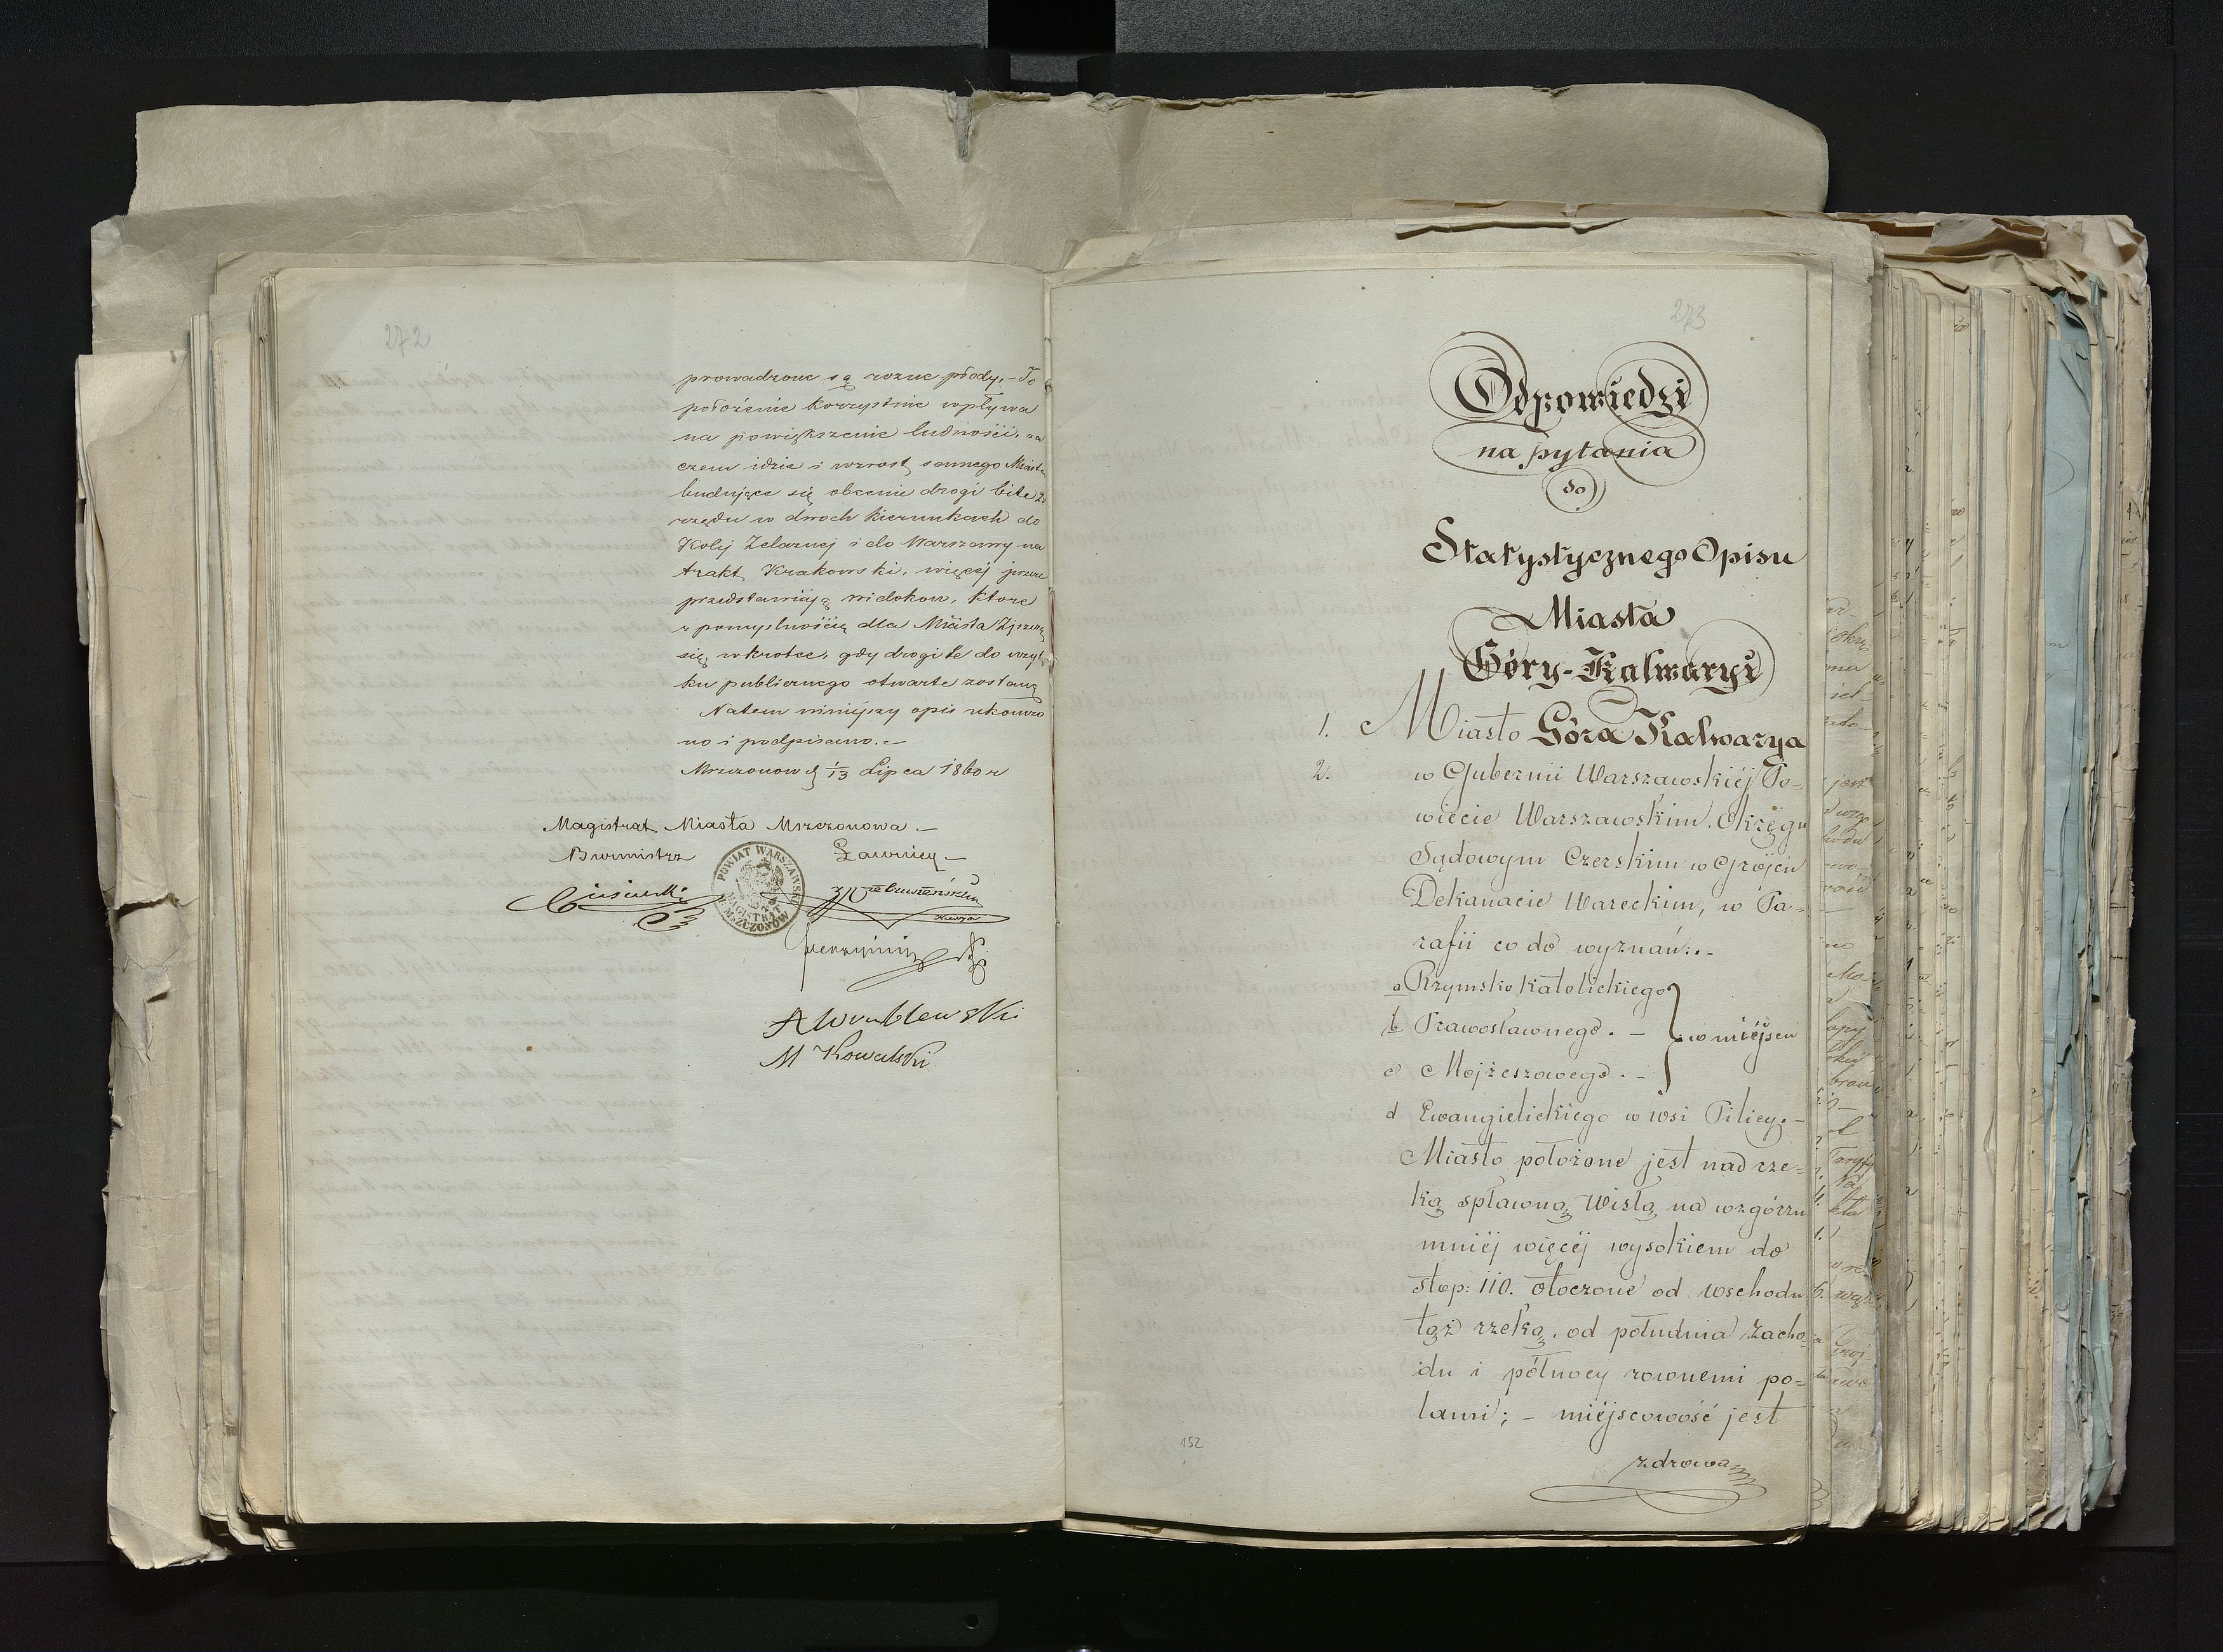 272
prowadzone są rozne płody. – To
położenie korzystnie wpływa
na powiększenie ludności, za
czem idzie i wzrost samego Miasta
budujące się obecnie drogi bite z
rzędu w dwoch kierunkach do
Kolej Zelaznej i do Warszawy na
trakt Krakowski, więcej jeszcze
przedstawiają widokow, ktore
z pomyslnością dla Miasta ziszczą
się wkrotce, gdy drogi te do użyt
ku publicznego otwarte zostaną
Natem niniejszy opis ukończo
no i podpisano. –
Mszczonow d 1/13 Lipca 1860 r
Magistrat Miasta Mszczonowa. –
Burmistrz Ławnicy –
POWIAT WARSZAWSKI
MAGISTRAT
M. MSZCZONÓW
A Wrublewski
M Kowalski
273
Odpowiedzi
na pytania
do
Statystycznego Opisu
Miasta
Góry-Kalwaryi
1. Miasto Góra Kalwarya
2. w Gubernii Warszawskiéj Po=
wiecie Warszawskim. Okręgu
Sądowym Czerskim w Grójcu
Dekanacie Wareckim, w Pa=
rafii co do wyznań:. –
a Rzymsko Katolickiego
b Prawosławnego. – } w miéjscu
c Mojżeszowego. –
d Ewangielickiego w wsi Pilicy. –
Miasto położone jest nad rze=
ką spławną Wisłą, na wzgórzu
mniéj więcéj wysokiem do
stop: 110. otoczone od wschodu
tąż rzeką, od południa zacho
du i północy rownemi po=
lami; – miéjscowość jest
zdrowa
152